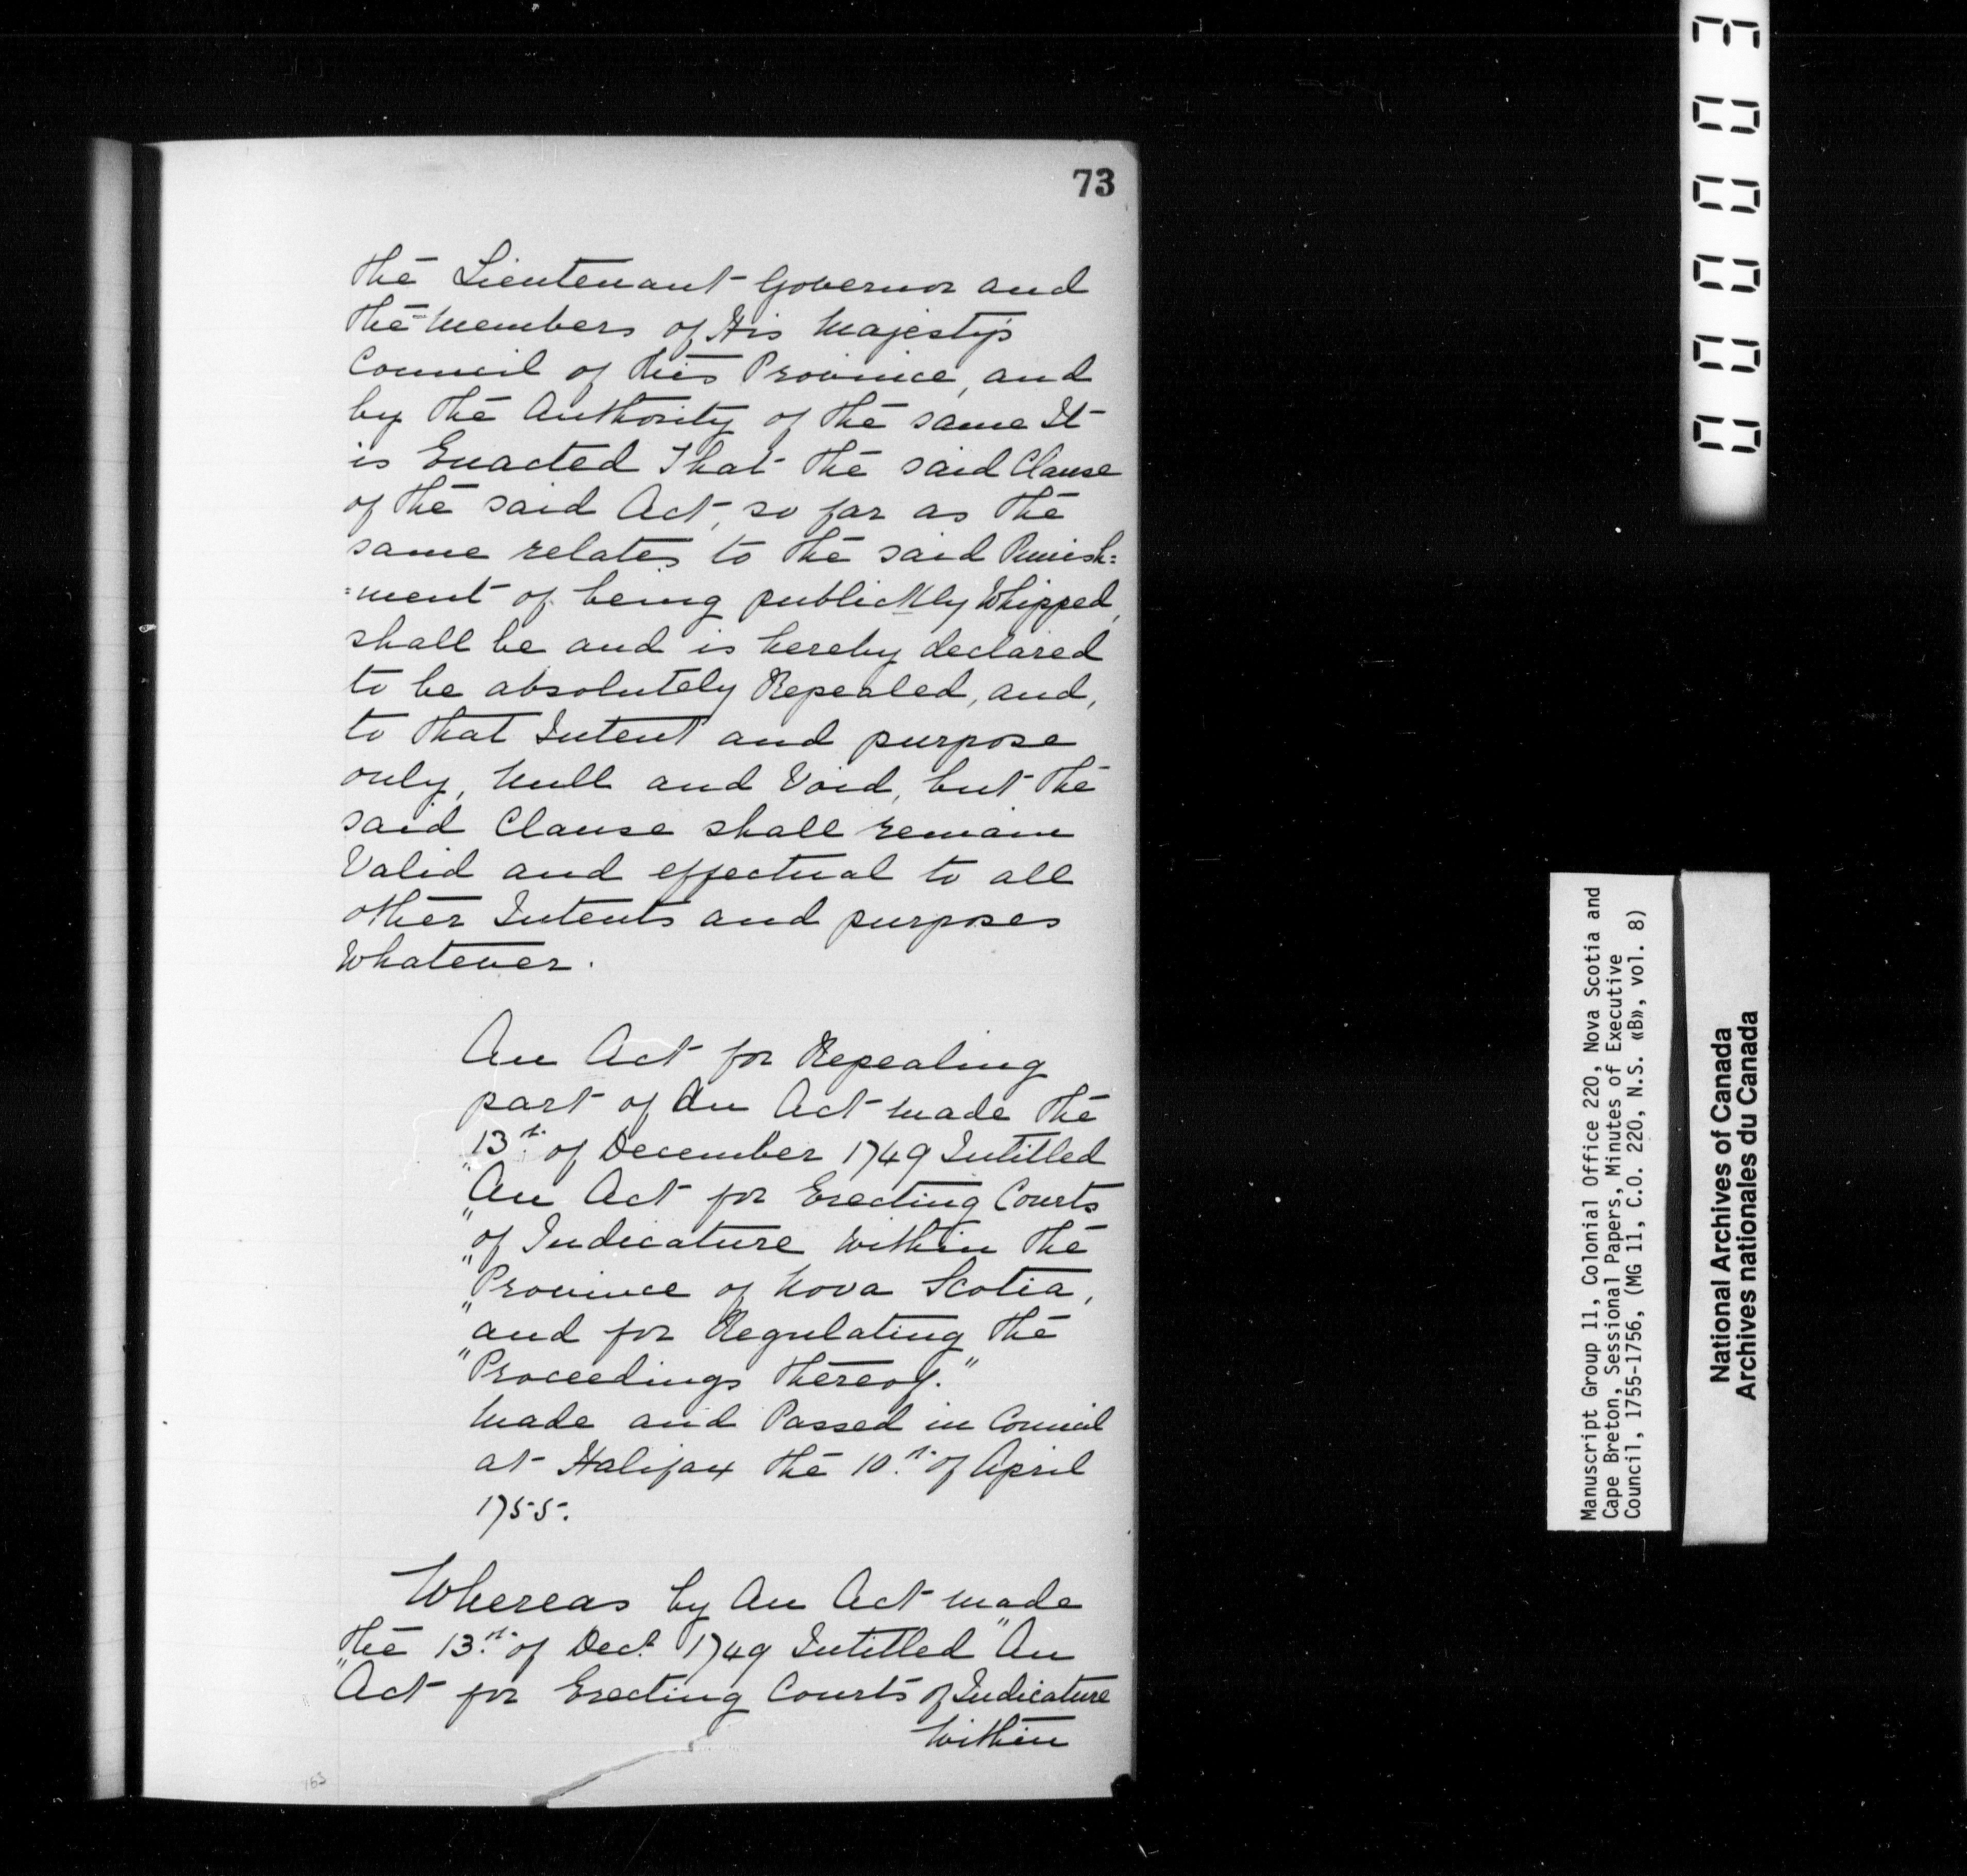 73
the Lieutenant Governor and
the Members of His Majesty's
Council of this Province, and
by the Authority of the same It
is Enacted That the said Clause
of the said Act, so far as the
same relates to the said Punish=
=ment of being publickly Whipped,
shall be and is hereby declared
to be absolutely Repealed, and,
to that Intent and purpose
only, Null and Void, but the
said Clause shall remain
Valid and effectual to all
other Intents and purposes
Whatever.
An Act for Repealing
part of An Act made the
13th of December 1749 Intitled
"An Act for Erecting Courts
"of Judicature Within the
"Province of Nova Scotia,
"and for Regulating the
"Proceedings thereof."
Made and Passed in Council
at Halifax the 10th of April
1755.
Whereas by An Act made
the 13th of Dec.r 1749 Intitled "An
"Act for Erecting Courts of Judicature
Within
163
000003
Manuscript Group 11, Colonial Office 220, Nova Scotia and
Cape Breton, Sessional Papers, Minutes of Executive
Council, 1755-1756, (MG 11, C.O. 220, N.S. «B», vol. 8)
National Archives of Canada
Archives nationales du Canada